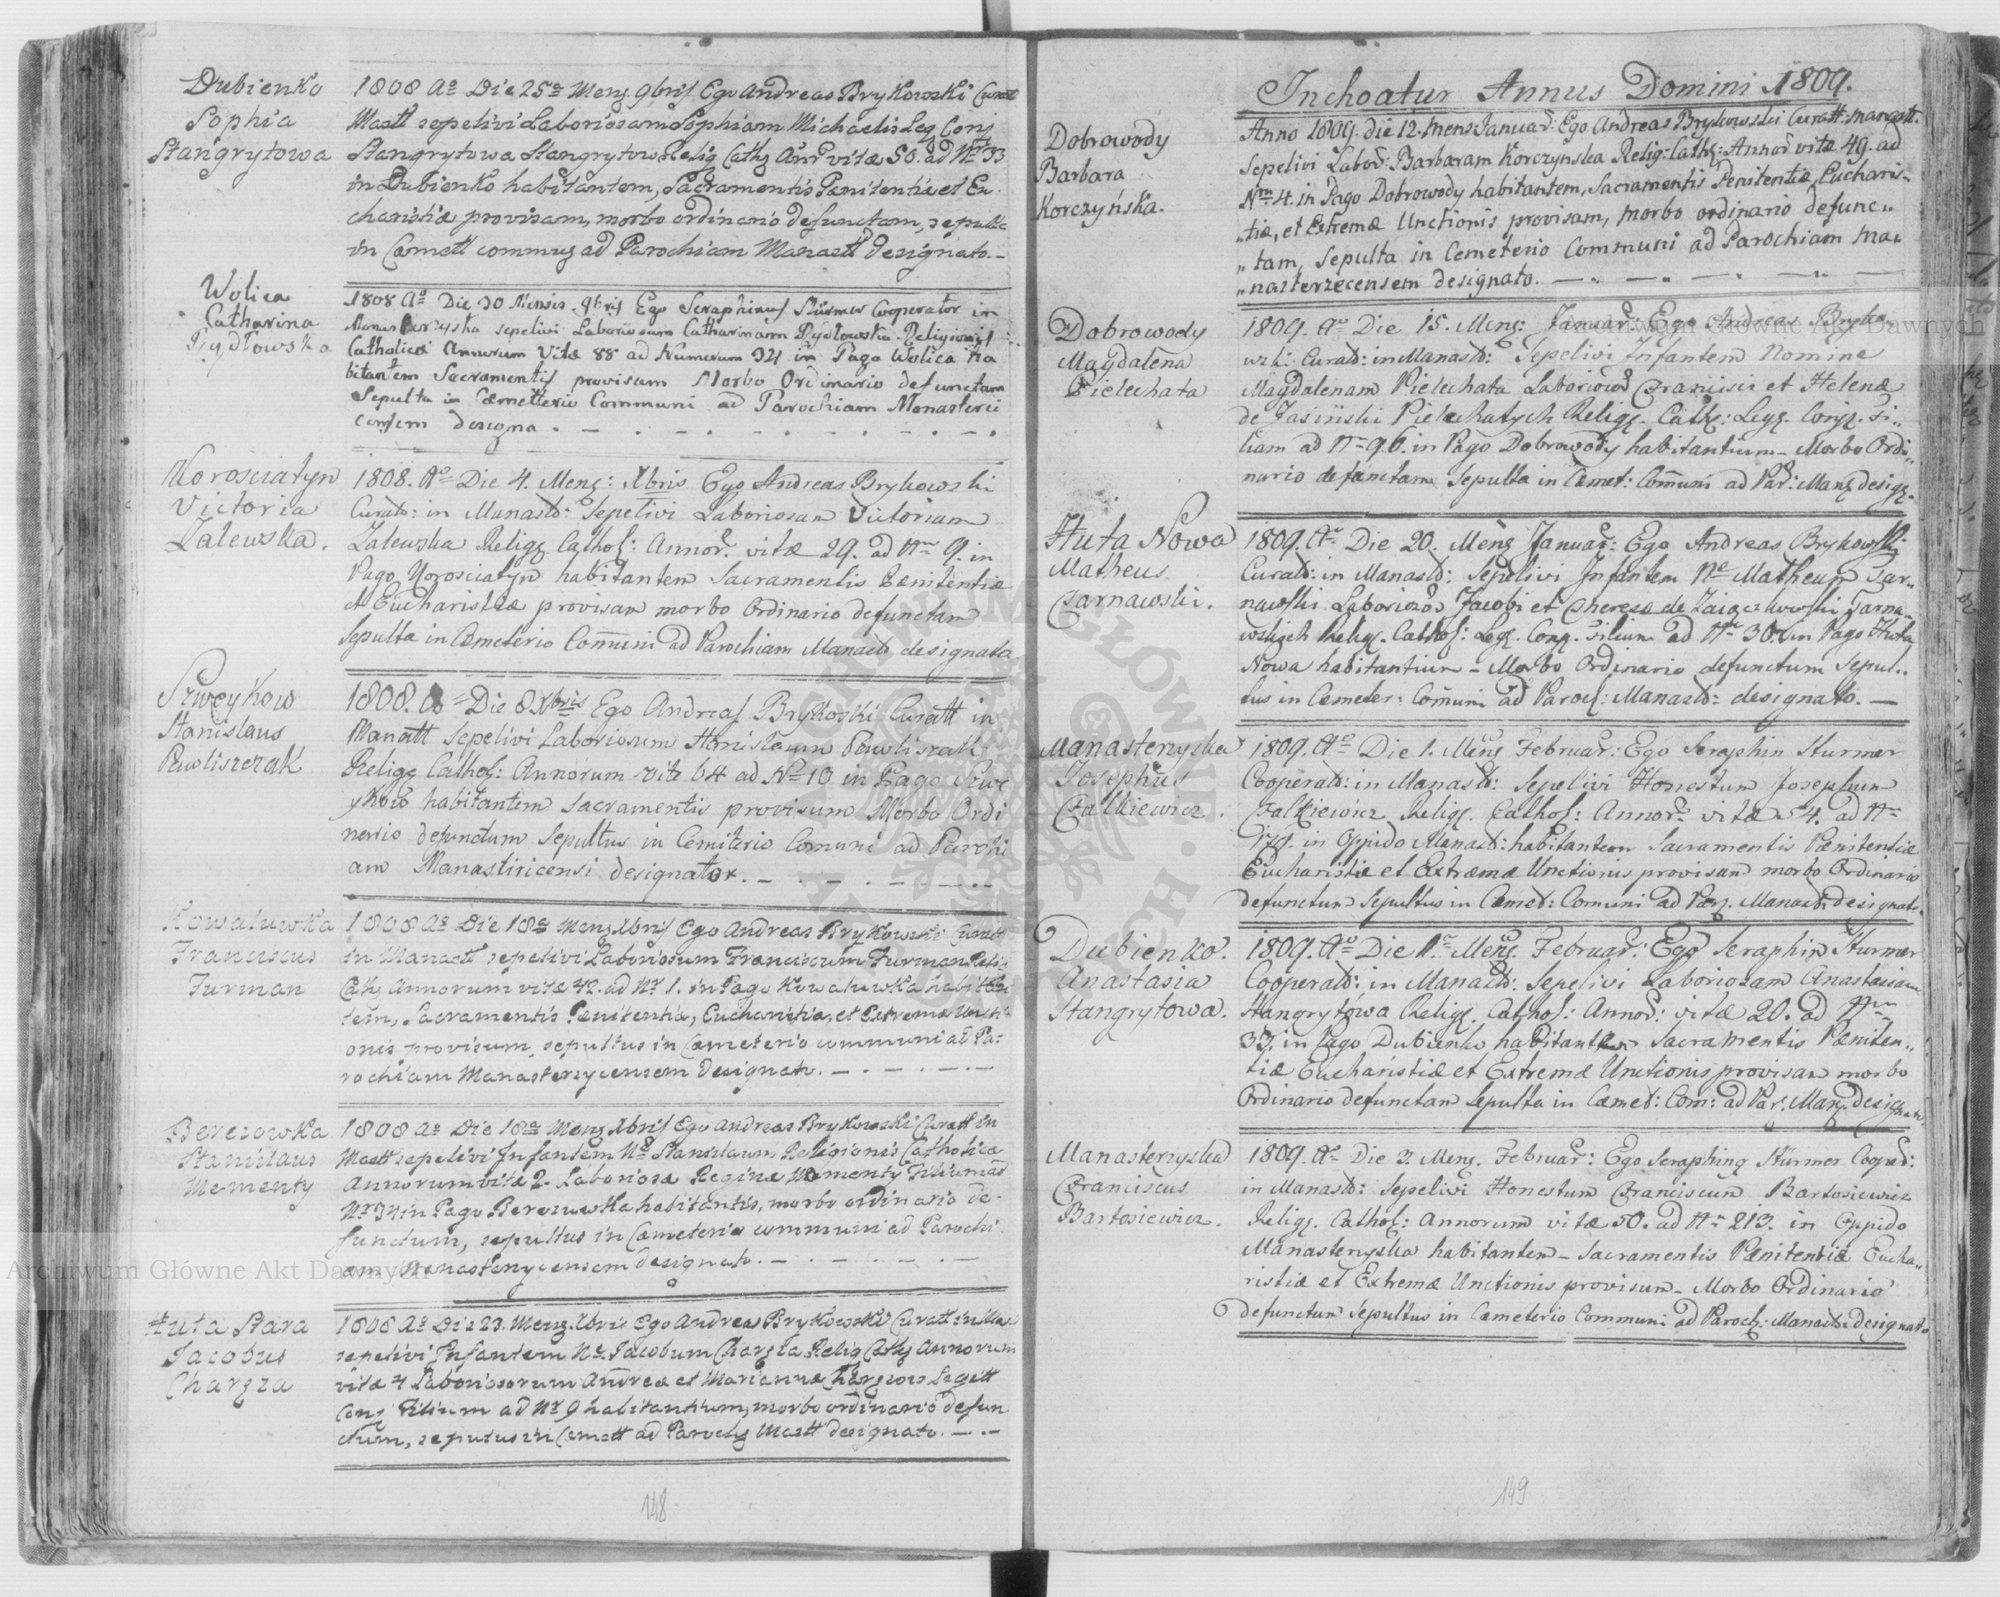 Dubienko
Sophia
Stangrytowa
1808 Ao Die 25a Mens. 9bris Ego Andreas Brykowski Curatt
Mastt sepelivi Laboriosam Sophiam Michaelis Leg Conj
Stangrytowa Stangrytow Relig Cath Anr vitæ 50. ad Nr 33
in Dubienko habitantem, Sacramentis Penitentiæ et Eu-
charistiæ provisam, morbo ordinario defunctam, sepulta
in Cæmett commu ad Parochiam Manastt designato. -
Wolica
Catharina
Pydłowska
1808 Ao Die 30 Mensis 9bris Ego Seraphinus Stürmer Cooperator in
Monasterzyska sepelivi Laboriosam Catharinam Pydłowska Religionis
Catholicæ Annorum Vitæ 88 ad Numerum 321 in Pago Wolica ha
bitantem Sacramentis provisam Morbo Ordinario defunctam
Sepulta in Cæmetterio Communi ad Parochiam Monasterii
censem designa . - . - . - .
Korosciatyn
Victoria
Zalewska.
1808. Ao Die 4. Mens: Xbris Ego Andreas Brykowski
Curatt: in Manastt: Sepelivi Laboriosam Victoriam
Zalewska Relig Cathol: Annor. vitæ 29. ad Nrm 9. in
Pago Korosciatyn habitantem Sacramentis Penitentiæ
et Eucharistiæ provisam morbo Ordinario defunctam
Sepulta in Cæmeterio Comuni ad Parochiam Manastt designata
Szweykow
Stanislaus
Pawliszczak
1808. Ao Die 8. Xbris Ego Andreas Brykoski Curatt in
Manastt Sepelivi Laboriosum Stanislaum Pawliszak
Relig Cathol: Annorum vitæ 64 ad No 10 in Pago Szwe
ykow habitantem Sacramentis provisum Morbo Ordi
nario defunctum Sepultus in Cemiterio Comuni ad Parochi
am Manastiricensi designator. - . - . - . -
Kowaluwka
Franciscus
Furman
1808 Ao Die 18a Mens Xbris Ego Andreas Brykowski Curatt
in Manastt sepelivi Laboriosum Franciscum Furman Relig
Cath Annorum vitæ 42. ad Nr 1. in Pago Kowaluwka habitan
tem, Sacramentis Penitentiæ, Eucharistiæ, et Extremæ Uncti-
onis provisum, sepultus in Cæmeterio communi ad Pa-
rochiam Manasterzycensem designato. - . - . - . -
Berezowka
Stanislaus
Mementy
1808 Ao Die 18a Mens Xbris Ego Andreas Brykowski Curatt in
Mastt sepelivi Infantem No Stanislaum Religionis Catholicæ
Annorum vitæ 2. Laboriosæ Reginæ Mementy Filium ad
Nr 34 in Pago Berezowka habitantis, morbo ordinario de-
functum, sepultus in Cæmeterio communi ad Parochi
am Manasterzycensem designato. - . - . - . -
Huta Stara
Jacobus
Chargza
1808 Ao Die 23. Mens Xbris Ego Andreas Brykowski Curatt in Ma
sepelivi Infantem No. Jacobum Chargza Relig Cath Annorum
vitæ 4 Laboriosorum Andreæ et Mariannæ Leg
Conj Filium ad Nr 9 habitantium, morbo ordinario defun
ctum, sepultus in Cemett ad Paroch Mastt designato. - . -
148
Inchoatur Annus Domini 1809.
Dobrowody
Barbara
Korczyńska.
Anno 1809. die 12. mens Januar: Ego Andreas Brykowski Curatt: manastt.
Sepelivi Labor: Barbaram Korczynska Relig: Cath: Annor vitæ 49. ad
Nrm 4. in Pago Dobrowody habitantem, Sacramentis Penitentiæ Eucharis-
„tiæ, et Extremæ Unctionis provisam, morbo ordinario defunc„
„tam, Sepulta in Cemeterio Communi ad Parochiam Ma„
„nasterzecensem designato. — „ — „ — „ —
Dobrowody
Magdalena
Pielechata
1809. Ao Die 15. Mens: Januar: Ego Andreas Bryko-
wski Curatt: in Manastt: Sepelivi Infantem Nomine
Magdalenam Pielechata Laborioso Francisci et Helenæ
de Jasiński Pielechatych Relig. Cath: Leg. Conj. Fi„
liam ad Nrm 96. in Pago Dobrowody habitantium - Morbo Ordi„
nario defunctam Sepulta in Cæmet: Comuni ad Par: Man desig.
Huta Nowa
Matheus
Tarnawski.
1809. Ao Die 20. Mens Januar: Ego Andreas Brykowski
Curatt: in Manastt: Sepelivi Infantem Ne Matheum Tar„
nawski Laborioso Jacobi et Theresæ de Zaiączkowski Tarna„
wskich Relig. Cathol: Leg. Conj. Filium ad Nr 30. in Pago Huta
Nowa habitantium - Morbo Ordinario defunctum Sepul„
tus in Cæmeter: Comuni ad Paroch: Manastt: designato. —
Manasterzyska
Josephus
Falkiewicz.
1809. Ao Die 1. Mens Februar: Ego Seraphin Sturmer
Cooperatt: in Manastt: Sepelivi Honestum Josephum
Falkiewicz Relig. Cathol: Annor. vitæ 54. ad Nrm
in Oppido Manastt: habitantem Sacramentis Pænitentiæ
Eucharistiæ et Extremæ Unctionis provisum morbo Ordinario
defunctum Sepultus in Cæmet: Comuni ad Par. Manastt: designato.
Dubienko.
Anastasia
Stangrytowa.
1809. Ao Die 1. Mens. Februar: Ego Seraphin Sturmer
Cooperatt: in Manastt: Sepelivi Laboriosam Anastasiam
Stangrytowa Relig. Cathol: Annor: vitæ 20. ad Nrm
33. in Pago Dubienko habitantem Sacramentis Pæniten„
tiæ Eucharistiæ et Extremæ Unctionis provisam morbo
Ordinario defunctam Sepulta in Cæmet: Com: ad Par. Man. design
Manasterzyska
Franciscus
Bartosiewicz.
1809. Ao Die 3. Mens. Februar: Ego Seraphing Stürmer Cooper:
in Manastt: Sepelivi Honestum Franciscum Bartosiewicz
Relig. Cathol: Annorum vitæ 50. ad Nrm 213. in Oppido
Manasterzyska habitantem - Sacramentis Pænitentiæ Eucha„
ristiæ et Extremæ Unctionis provisum - Morbo Ordinario
defunctum Sepultus in Cæmeterio Communi ad Paroch: Manastt: designato
149
Archiwum Główne Akt Dawnych